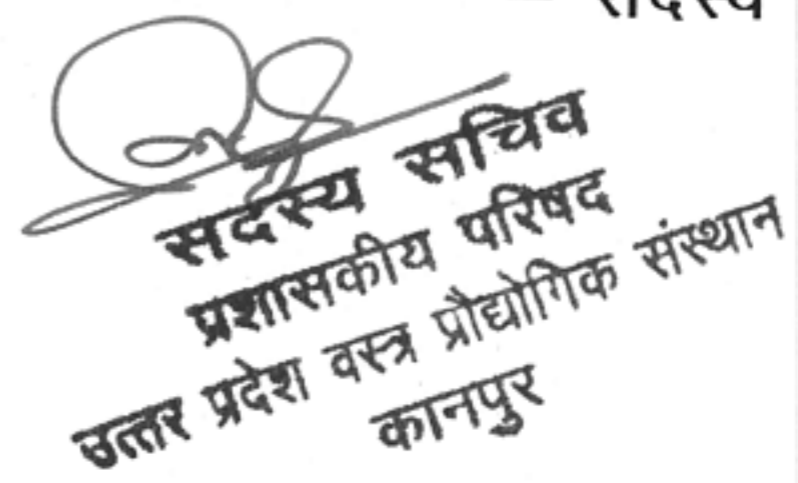 सदस्य
सदस्य सचिव
प्रशासकीय परिषद
उत्तर प्रदेश वस्त्र प्रौद्योगिक संस्थान
कानपुर